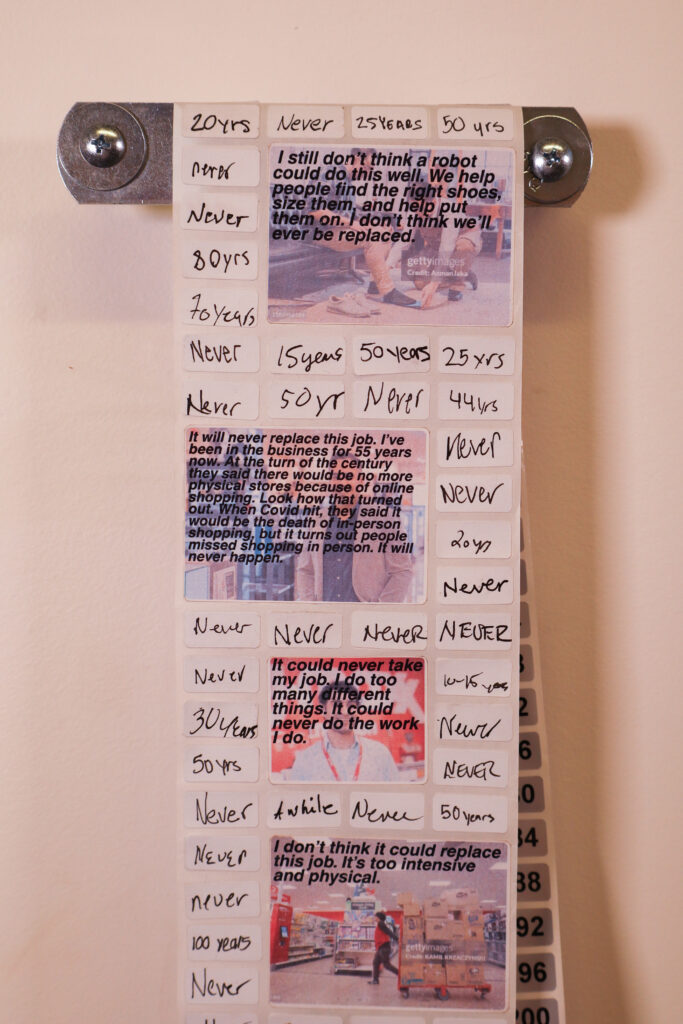 20yrs Never 25 YEARS 50 yrs
never
Never
80yrs
70 Years
I still don't think a robot
could do this well. We help
people find the right shoes,
size them, and help put
them on. I don't think we'll
ever be replaced.
gettyimages
Credit: AsmanJaka
Never 15 years 50 years 25 yrs
Never 50 yr Never 44 yrs
It will never replace this job. I've
been in the business for 55 years
now. At the turn of the century
they said there would be no more
physical stores because of online
shopping. Look how that turned
out. When Covid hit, they said it
would be the death of in-person
shopping, but it turns out people
missed shopping in person. It will
never happen.
Never
Never
20 yrs
Never
Never Never NEVER NEVER
Never
30 Years
50 yrs
It could never take
my job. I do too
many different
things. It could
never do the work
I do.
10-15 years
Never
NEVER
Never Awhile Never 50 years
Never
never
100 years
Never
I don't think it could replace
this job. It's too intensive
and physical.
gettyimages
Credit: KAMIL KRZACZYNSKI
84
88
92
96